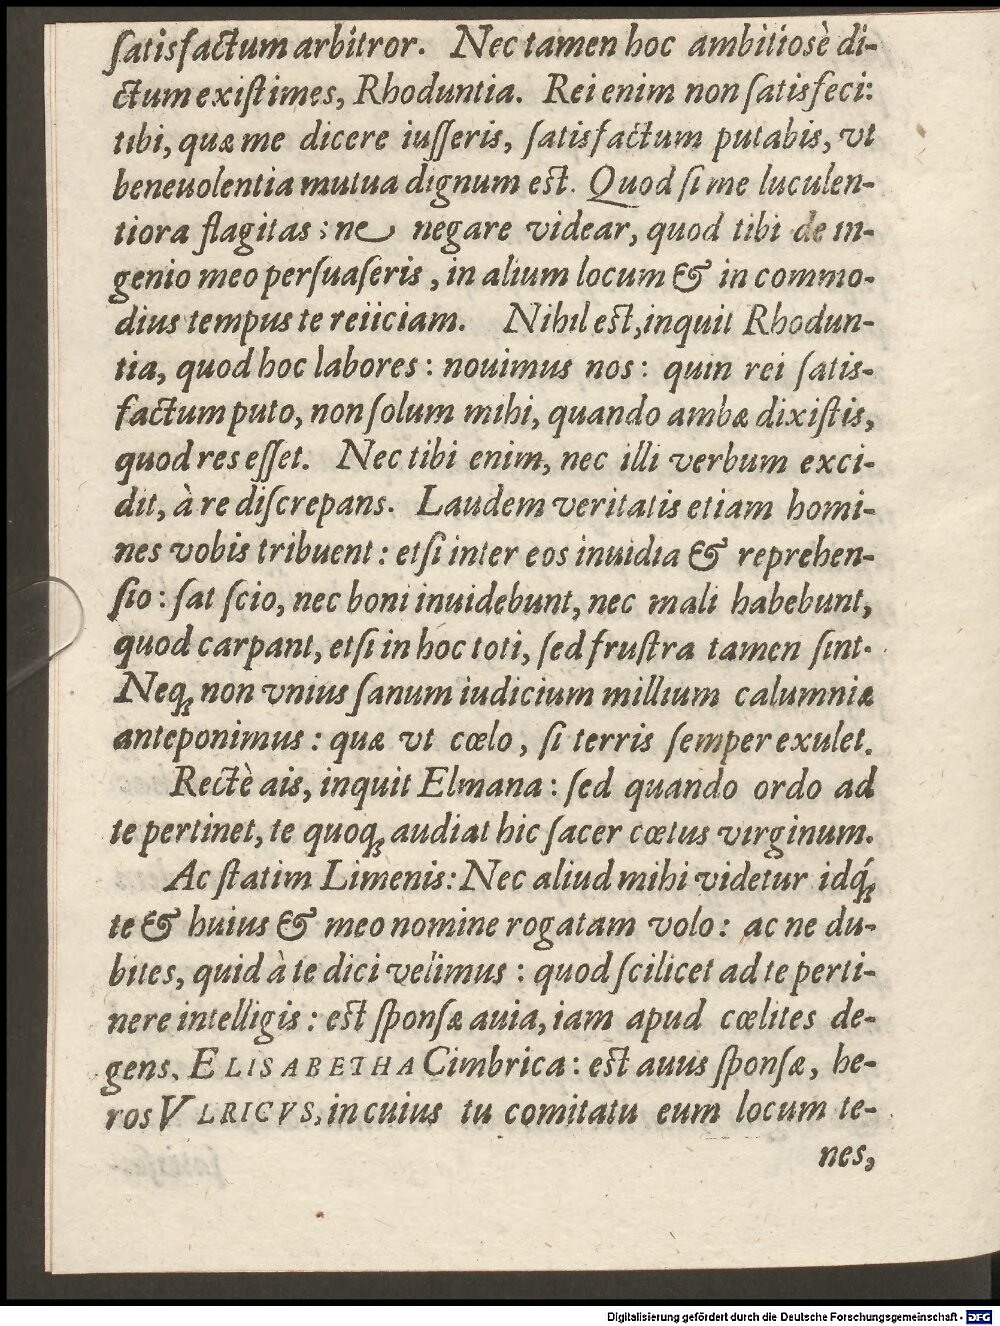 ſatisfactum arbitror. Nec tamen hoc ambitiosè di-
ctum exiſtimes, Rhoduntia. Rei enim non ſatisfeci:
tibi, quæ me dicere iuſſeris, ſatisfactum putabis, vt
beneuolentia mutua dignum est. Quod ſi me luculen-
tiora flagitas: ne negare videar, quod tibi de in-
genio meo perſuaſeris, in alium locum & in commo-
dius tempus te reiiciam. Nihil est, inquit Rhodun-
tia, quod hoc labores: nouimus nos: quin rei ſatis-
factum puto, non ſolum mihi, quando ambæ dixiſtis,
quod res eſſet. Nec tibi enim, nec illi verbum exci-
dit, à re diſcrepans. Laudem veritatis etiam homi-
nes vobis tribuent: etſi inter eos inuidia & reprehen-
ſio: ſat ſcio, nec boni inuidebunt, nec mali habebunt,
quod carpant, etſi in hoc toti, ſed fruſtra tamen ſint.
Neq; non vnius ſanum iudicium millium calumniæ
anteponimus: quæ vt cœlo, ſi terris ſemper exulet.
Rectè ais, inquit Elmana: ſed quando ordo ad
te pertinet, te quoq; audiat hic ſacer cœtus virginum.
Ac ſtatim Limenis: Nec aliud mihi videtur idq́;
te & huius & meo nomine rogatam volo: ac ne du-
bites, quid à te dici velimus: quod ſcilicet ad te perti-
nere intelligis: est ſponſæ auia, iam apud cœlites de-
gens, ELISABETHA Cimbrica: est auus ſponſæ, he-
ros VLRICVS, in cuius tu comitatu eum locum te-
nes,
Digitalisierung gefördert durch die Deutsche Forschungsgemeinschaft - DFG